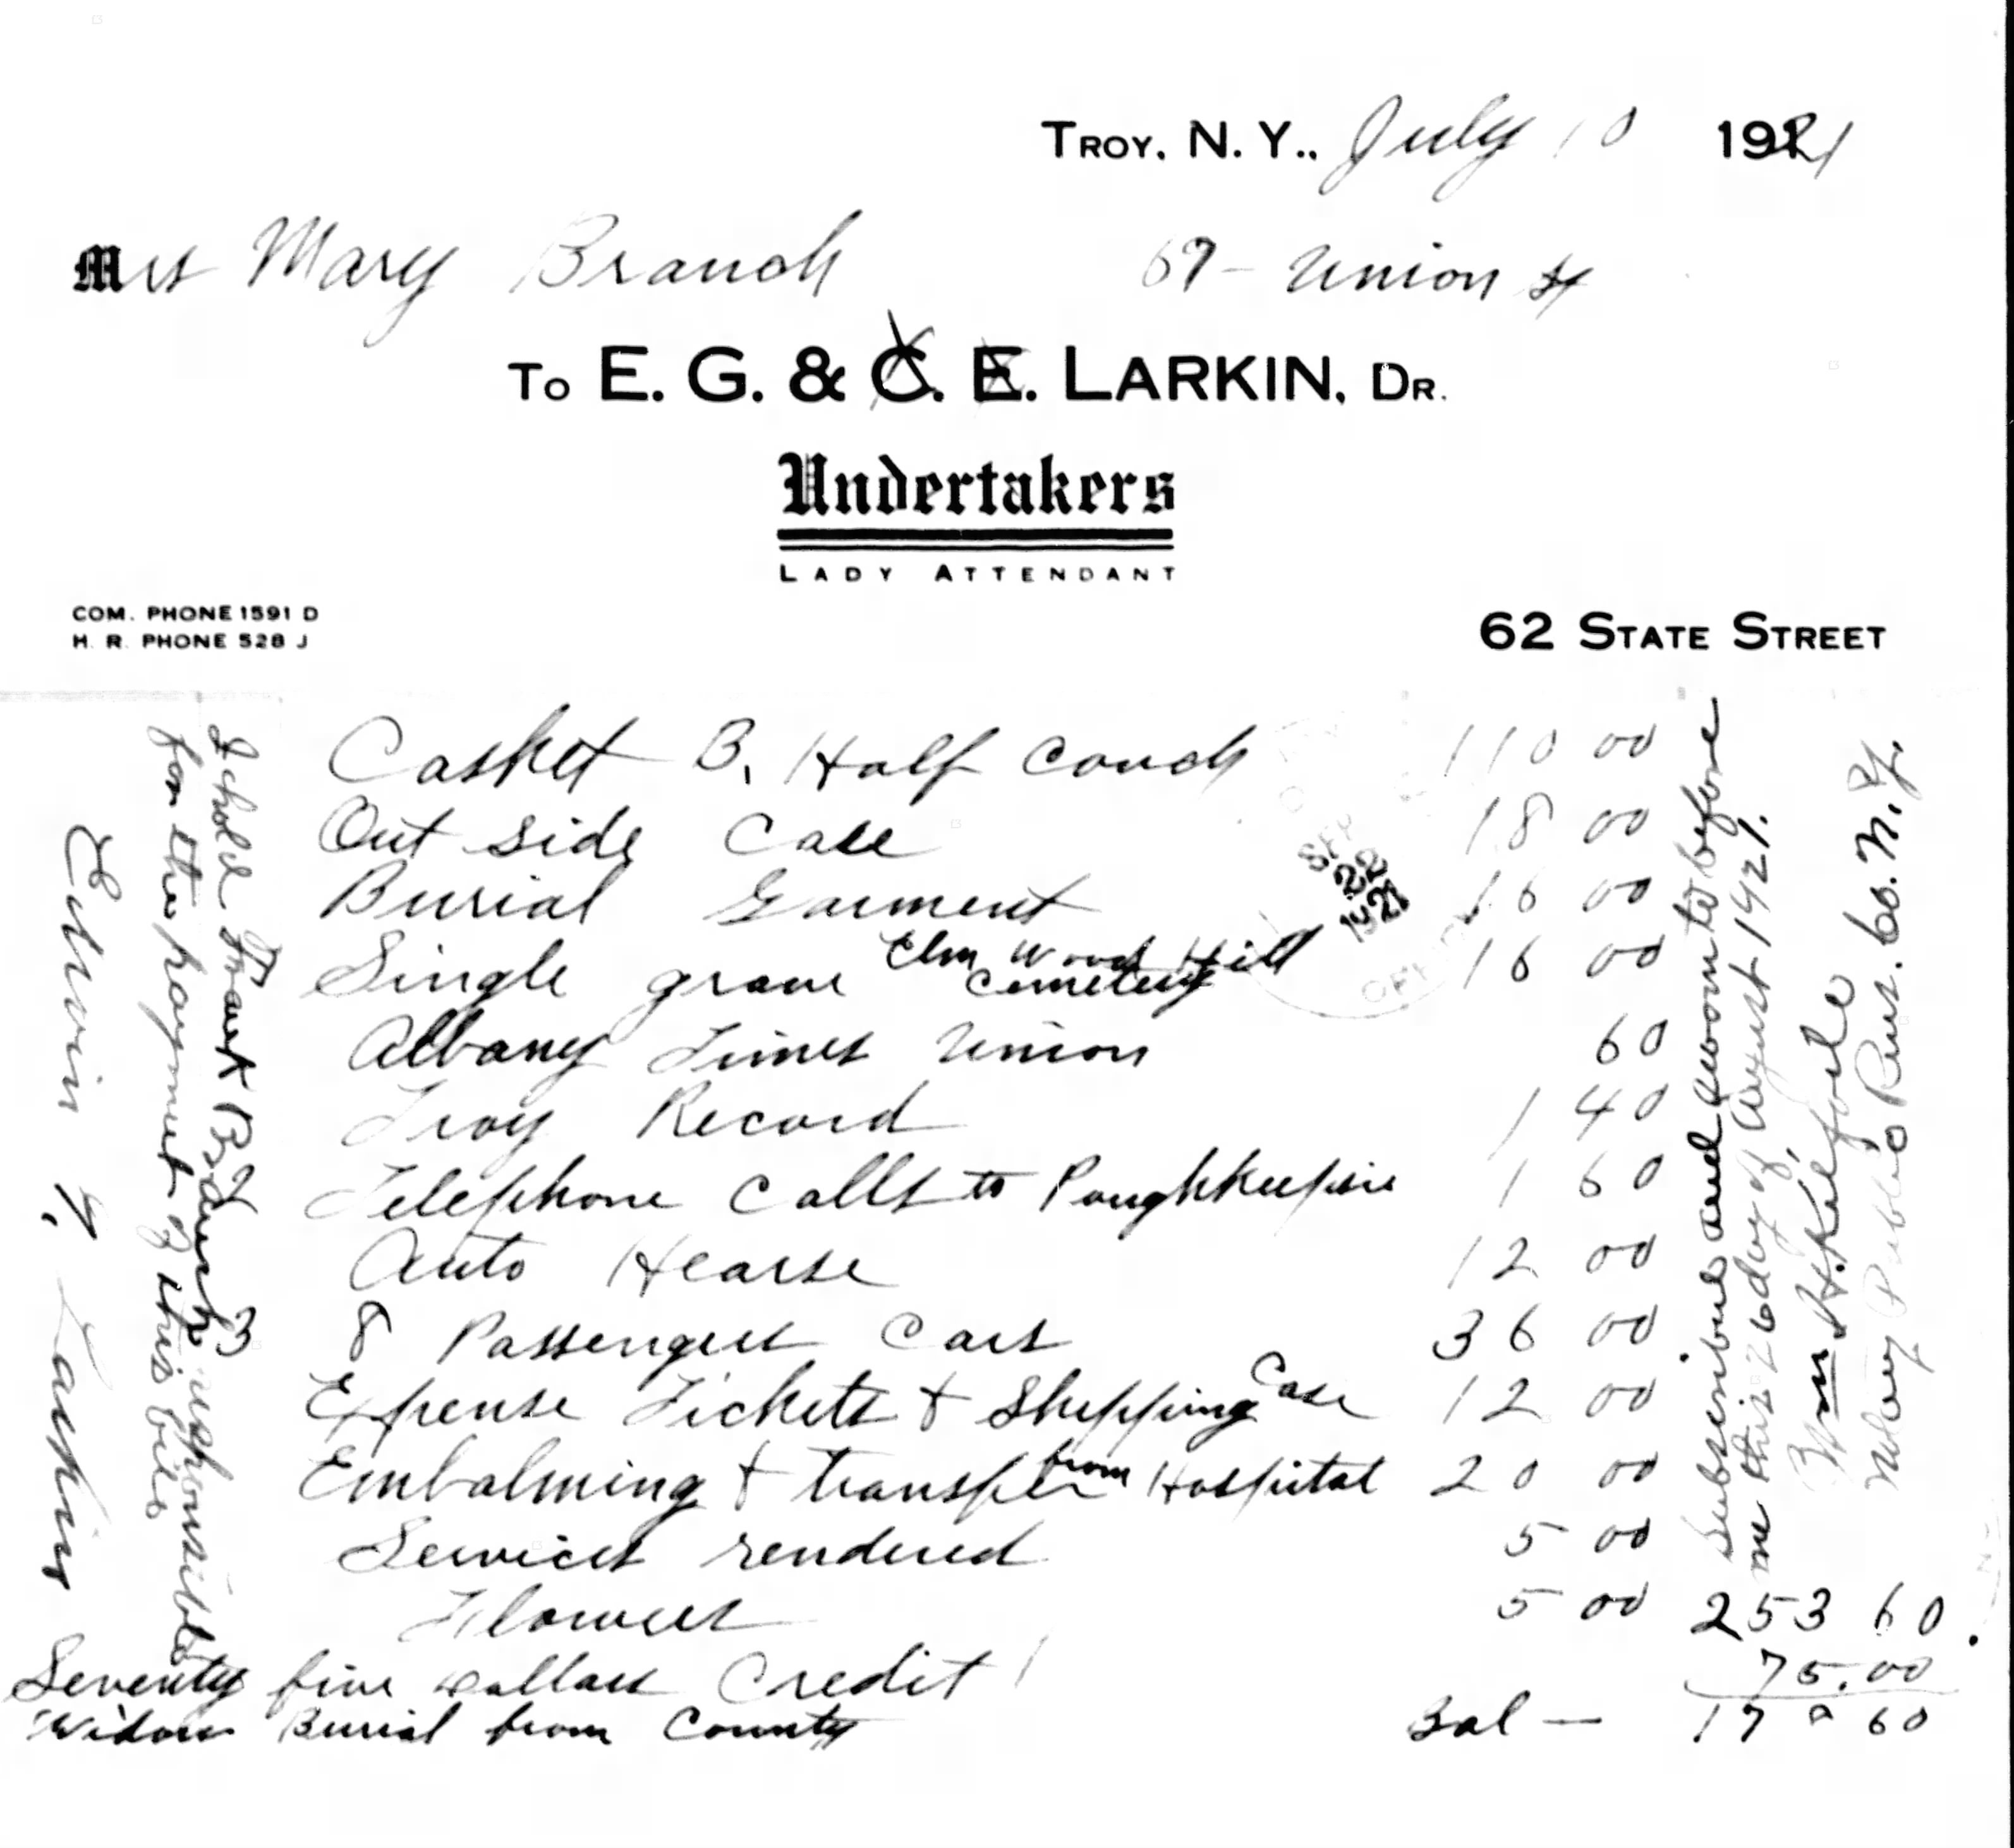 TROY, N. Y., July 10 1921
Mrs Mary Branch 67 - Union St
TO E. G. & C. E. LARKIN, DR.
Undertakers
LADY ATTENDANT
COM. PHONE 1591 D
H. R. PHONE 528 J
62 STATE STREET
Casket B. Half Couch 110 00
Out side Case 18 00
Burial Garment 16 00
Single grave Elm Wood Hill Cemetery 16 00
Albany Times Union 60
Troy Record 1 40
Telephone Calls to Poughkeepsie 1 60
Auto Hearse 12 00
8 Passengers Cars 36 00
Expense Tickets & Shipping Case 12 00
Embalming & transfer from Hospital 20 00
Services rendered 5 00
Flowers 5 00 253 60
Seventy five dollars Credit 75.00
Widow Burial from County Bal — 178 60
I hold Frank responsible
for the payment of this bill
Edwin G. Larkin
Subscribed and sworn to before
me this 26 day of August 1921.
Wm H.
Notary Public Rens. Co. N.Y.
SEP
22
1921